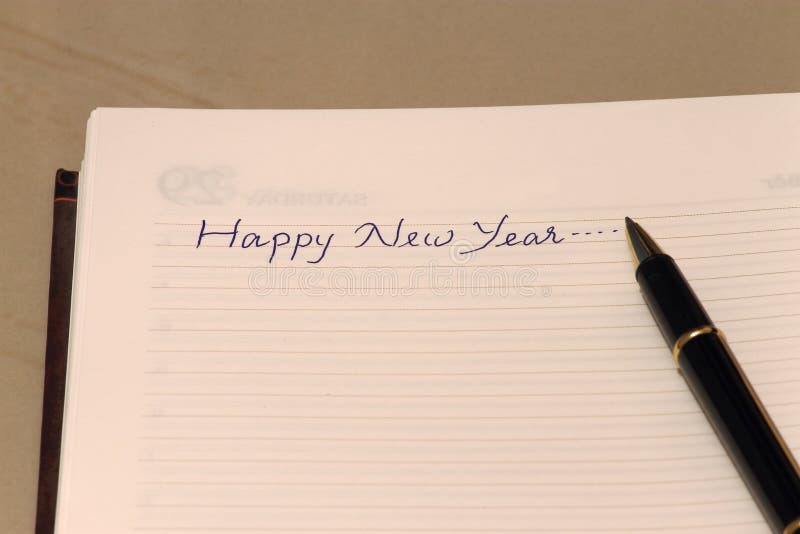 29
SATURDAY
Happy New Year----
dreamstime